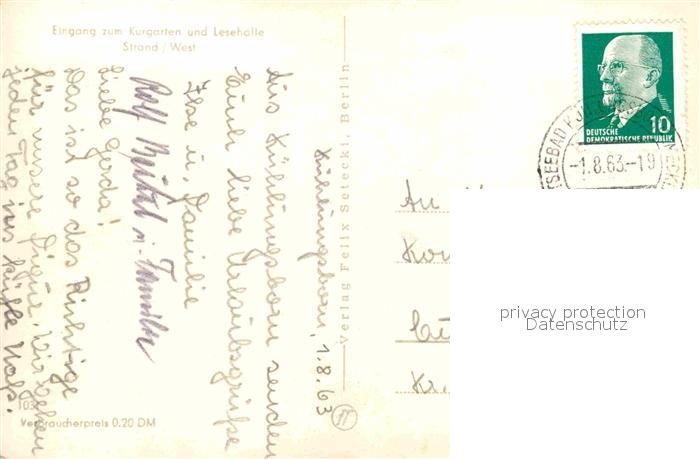 Eingang zum Kurgarten und Lesehalle
Strand / West
Kühlungsborn, 1.8.63
Aus Kühlungsborn senden
Euch liebe Urlaubsgrüße
Ilse u. Familie
Rolf u. Familie
Liebe Gerda!
Das ist so das Richtige
für unsere Figur. Wir gehen
jeden Tag ins kühle Naß.
Verbraucherpreis 0.20 DM
Verlag Felix Setecki, Berlin
10
DEUTSCHE
DEMOKRATISCHE REPUBLIK
OSTSEEBAD
-1.8.63.-19
An
Kr.
privacy protection
Datenschutz